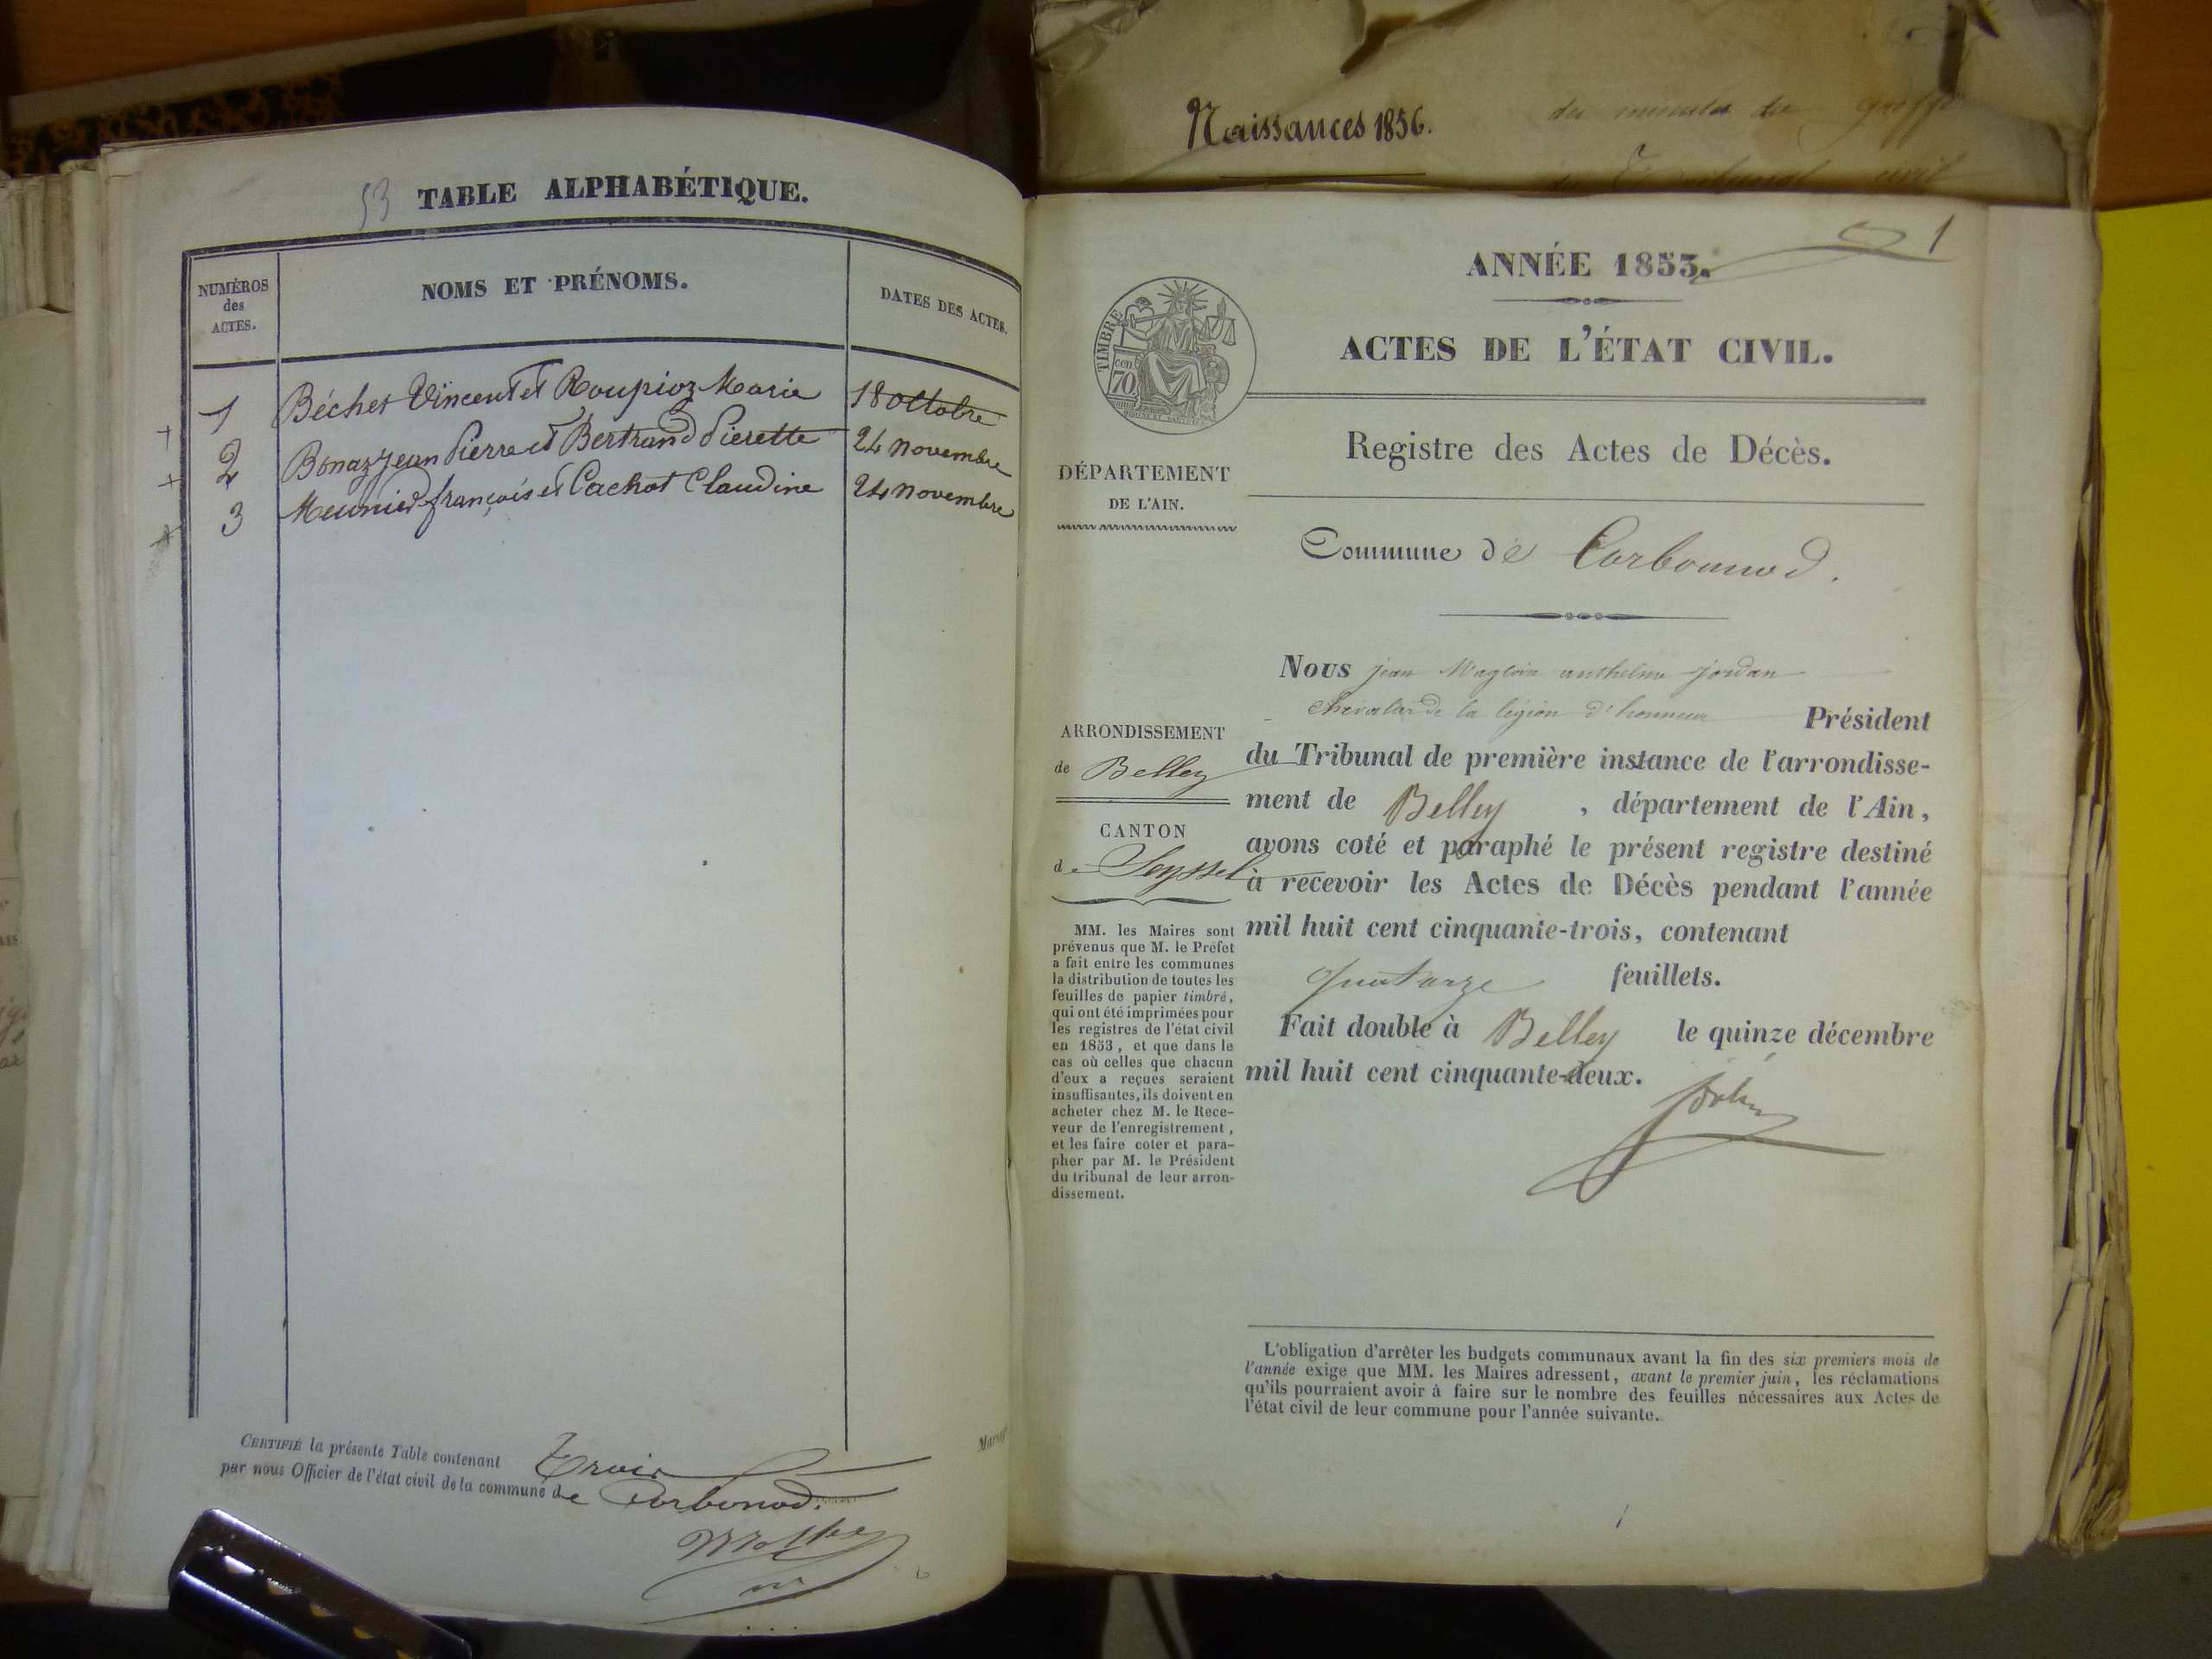 Naissances 1856.
du greffe
civil
53 TABLE ALPHABÉTIQUE.
NUMÉROS
des
ACTES.
NOMS ET PRÉNOMS.
DATES DES ACTES.
1 Béchet Vincent et Roupioz Marie 18 octobre
2 Bonaz jean Pierre et Bertrand Pierette 24 novembre
3 Meunier françois et Cachot Claudine 24 novembre
CERTIFIÉ la présente Table contenant Trois
par nous Officier de l'état civil de la commune de Corbonod.
1
ANNÉE 1853.
TIMBRE
cen
70
ACTES DE L'ÉTAT CIVIL.
Registre des Actes de Décès.
DÉPARTEMENT
DE L'AIN.
Commune de Corbonod.
Nous jean Magloire anthelme jordan
Chevalier de la légion d'honneur Président
du Tribunal de première instance de l'arrondisse-
ment de Belley , département de l'Ain,
avons coté et paraphé le présent registre destiné
à recevoir les Actes de Décès pendant l'année
mil huit cent cinquante-trois, contenant
quatorze feuillets.
Fait double à Belley le quinze décembre
mil huit cent cinquante-deux.
ARRONDISSEMENT
de Belley
CANTON
de Seyssel
MM. les Maires sont
prévenus que M. le Préfet
a fait entre les communes
la distribution de toutes les
feuilles de papier timbré,
qui ont été imprimées pour
les registres de l'état civil
en 1853, et que dans le
cas où celles que chacun
d'eux a reçues seraient
insuffisantes, ils doivent en
acheter chez M. le Rece-
veur de l'enregistrement,
et les faire coter et para-
pher par M. le Président
du tribunal de leur arron-
dissement.
L'obligation d'arrêter les budgets communaux avant la fin des six premiers mois de
l'année exige que MM. les Maires adressent, avant le premier juin, les réclamations
qu'ils pourraient avoir à faire sur le nombre des feuilles nécessaires aux Actes de
l'état civil de leur commune pour l'année suivante.